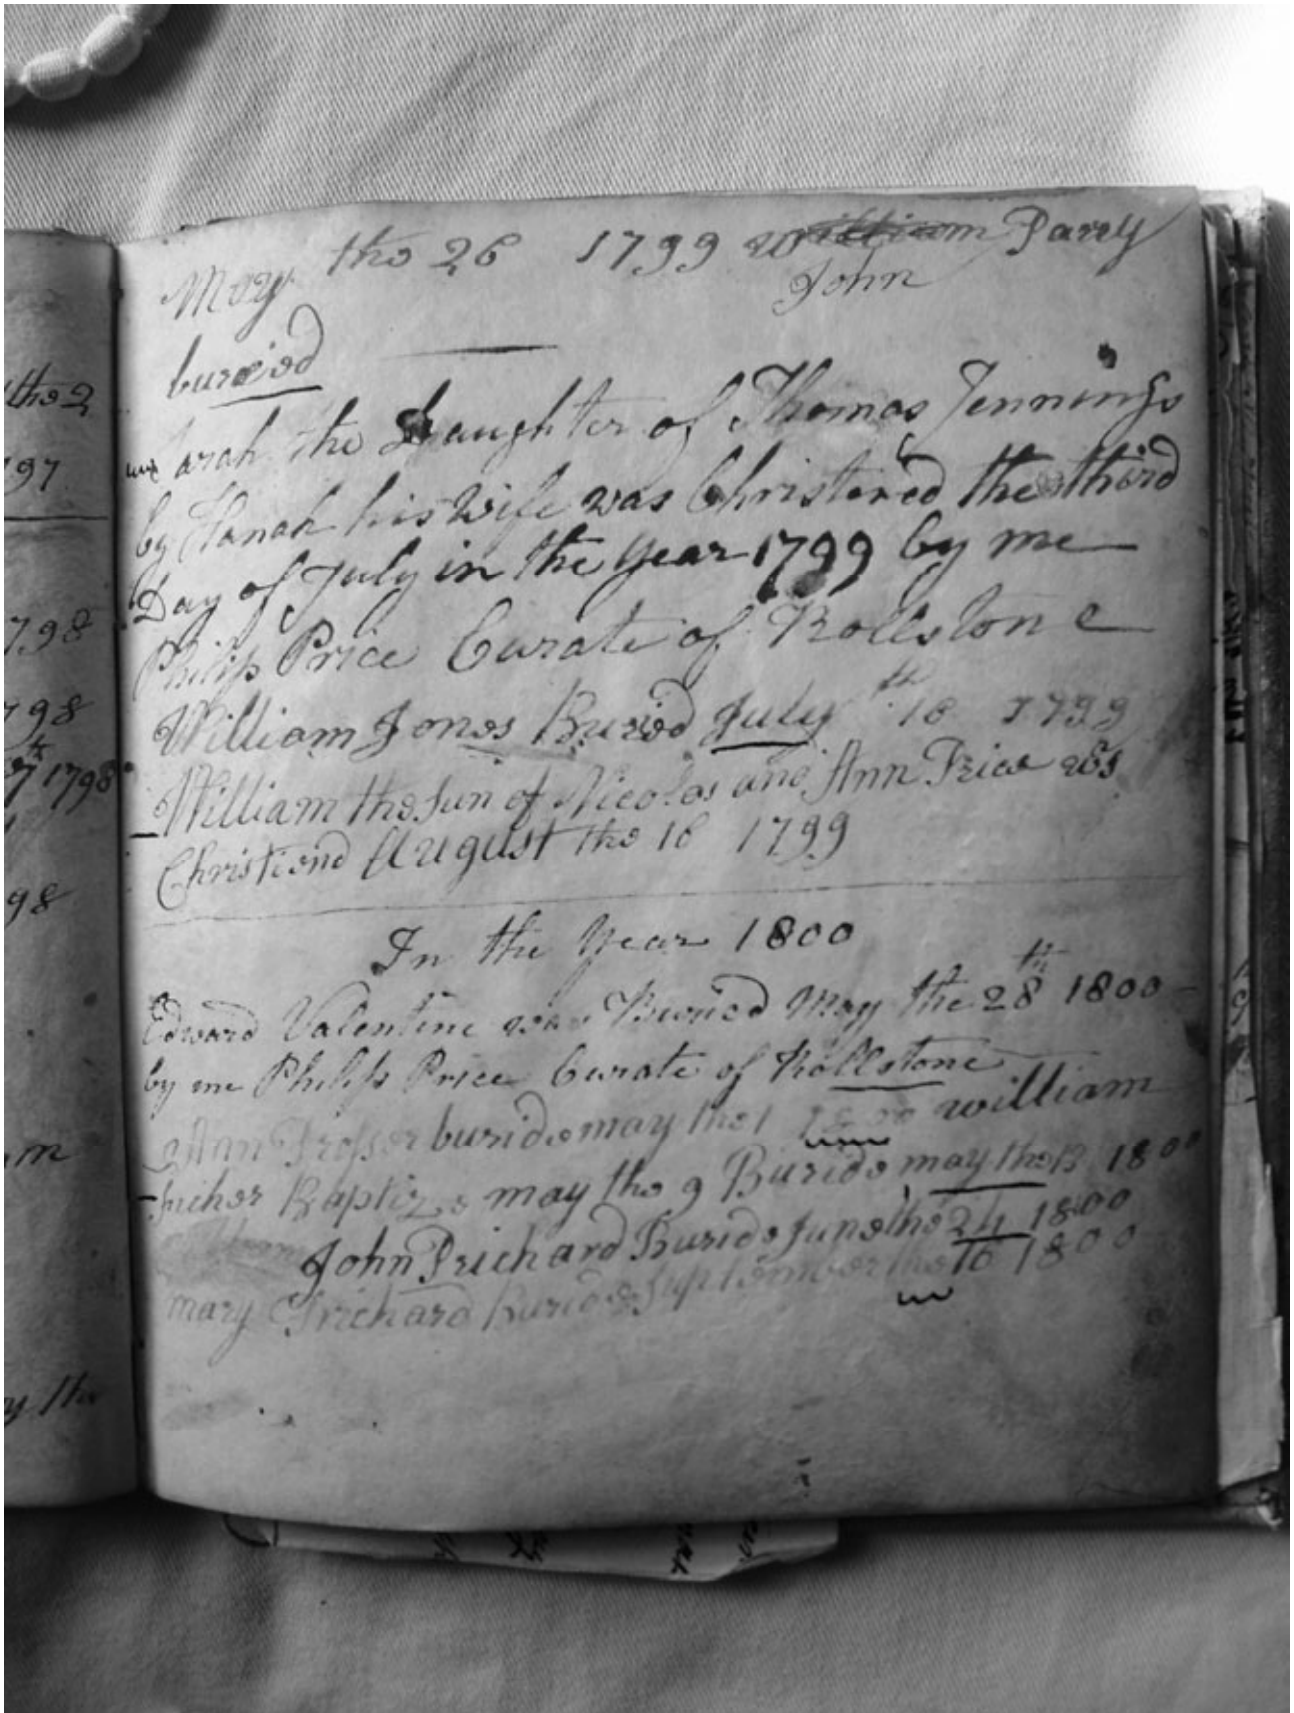 the 2
97
798
798
7th 1798
98
m
y the
May the 26 1799 william Parry
John
buried
arah the Daughter of Thomas Jennings
by Hanah his Wife was Christened the third
Day of July in the Year 1799 by me
Philip Price Curate of Rollstone
William Jones Buried July th 18 1799
William the sun of Nicolas and Ann Price was
Christiend August the 16 1799
In the Year 1800
Edward Valentine was Buried May the 28th 1800
by me Philip Price Curate of Rollstone
Ann Prosser buride may the 1 1800 william
Baptize may the 9 Buride may the 13 1800
John Prichard Buride June the 24 1800
mary Prichard Buride September the 16 1800